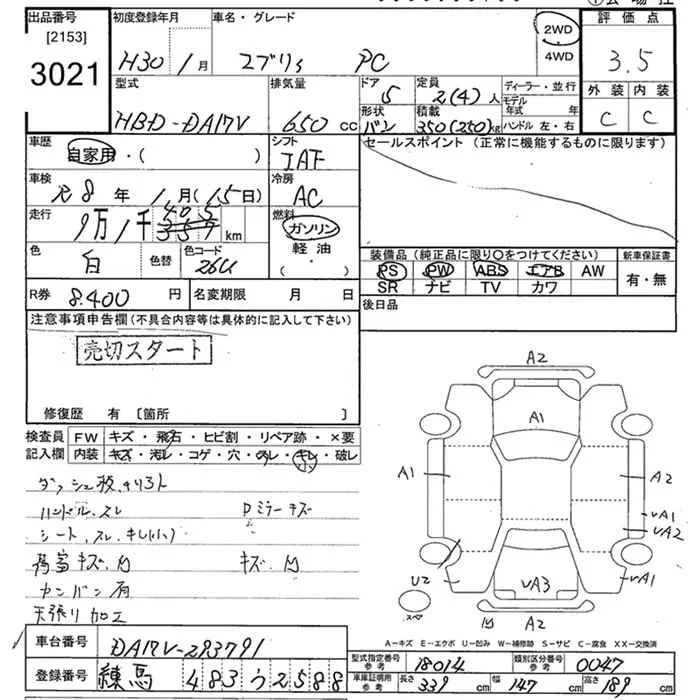 出品番号 初度登録年月 車名・グレード 評価点
[2153]
3021
H30 1月 エブリィ PC 2WD 4WD 3.5
型式 排気量 ドア 定員 ディーラー・並行 外装 内装
HBD-DA17V 650cc 5 2(4)人 モデル年式 年 C C
形状 バン 積載 350(250)kg ハンドル 左・右
車歴 シフト セールスポイント (正常に機能するものに限ります)
自家用・( ) IAT
車検 冷房
R8年 1月(15日) AC
走行 燃料
9万1千 405 357 km ガソリン
軽油
・( )
色 白 色替 色コード 26U
装備品 (純正品に限り○をつけてください) 新車保証書
PS PW ABS エアB AW 有・無
SR ナビ TV カワ
R券 8.400円 名変期限 月 日 後日品
注意事項申告欄 (不具合内容等は具体的に記入して下さい)
売切スタート
修復歴 有 〔箇所 〕
検査員 FW キズ・飛石・ヒビ割・リペア跡・×要
記入欄 内装 キズ・汚レ・コゲ・穴・スレ・キレ・破レ
ハンドル、スレ Dミラーキズ
シート、スレ、キレ(小)
カンバン 有
天張り 加工
A2
A1
A1 A2
UA1
UA2
U2 UA3 UA1
スペア
凹 A2
A-キズ E-エクボ U-凹み W-補修跡 S-サビ C-腐食 XX-交換済
車台番号 DA17V-293791
型式指定番号 参考 18014 類別区分番号 参考 0047
登録番号 練馬 483 う 2588
車庫証明用 参考 長さ 339cm 幅 147cm 高さ 189cm